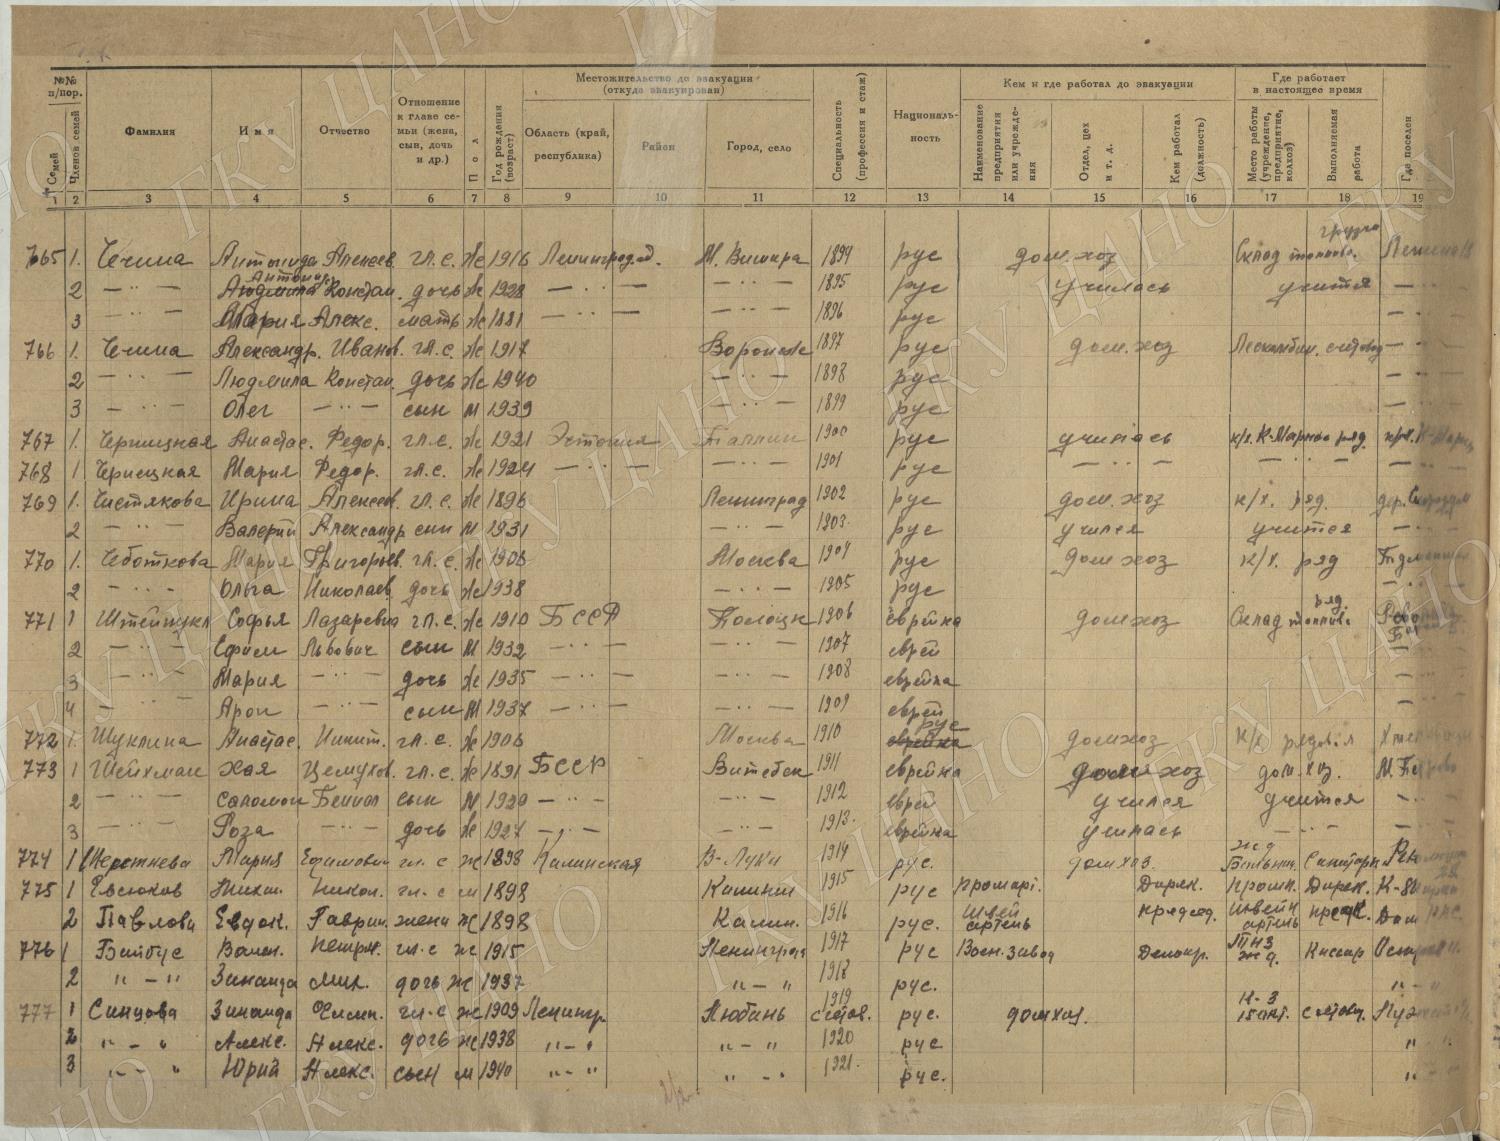 №№ п/пор.
Семей
Членов семей
Фамилия
Имя
Отчество
Отношение к главе семьи (жена, сын, дочь и др.)
Пол
Год рождения (возраст)
Местожительство до эвакуации (откуда эвакуирован)
Область (край, республика)
Район
Город, село
Специальность (профессия и стаж)
Националь-ность
Кем и где работал до эвакуации
Наименование предприятия или учрежде-ния
Отдел, цех и т. д.
Кем работал (должность)
Где работает в настоящее время
Место работы (учреждение, предприятие, колхоз)
Выполняемая работа
Где поселен
1 2 3 4 5 6 7 8 9 10 11 12 13 14 15 16 17 18 19
765 1. Чечина Антонида Алексеев. гл. с. Ж 1916 Ленинград. М. Вишера 1894 рус дом. хоз Склад топлива. грузч
2 — ·· — Антонид. Людмила Констан. дочь Ж 1928 — ·· — — ·· — 1895 рус училась учится — ··
3 — ·· — Мария Алекс. мать Ж 1881 — ·· — — ·· — 1896 рус — ··
766 1. Чечина Александр. Иванов. гл. с. Ж 1917 Воронеж 1897 рус дом. хоз Лескомбин. счетовод — ··
2 — ·· — Людмила Констан. дочь Ж 1940 — ·· — 1898 рус — ··
3 — ·· — Олег — ·· — сын М 1939 — ·· — 1899 рус — ··
767 1. Анастас. Федор. гл. с. Ж 1921 Эстония Таллин 1900 рус училась к/х. К-Маркс ряд. к/х. К-Маркс
768 1 Мария Федор. гл. с. Ж 1924 — ·· — — ·· — 1901 рус — ·· — — ·· — — ··
769 1. Чистякова Ирина Алексеев. гл. с. Ж 1896 Ленинград 1902 рус дом. хоз к/х. ряд. дер.
2 — ·· — Валерий Александр сын М 1931 — ·· — 1903. рус учился учится — ··
770 1. Чеботкова Мария Григорьев. гл. с. Ж 1906 Москва 1904 рус дом хоз к/х. ряд
2 — ·· — Ольга Николаев. дочь Ж 1938 — ·· — 1905 рус — ··
771 1 Софья Лазаревна гл. с. Ж 1910 БССР Полоцк 1906 еврейка дом хоз Склад топлива ряд.
2 — ·· — Ефим Львович сын М 1932 — ·· — — ·· — 1907 еврей
3 — ·· — Мария — ·· — дочь Ж 1935 — ·· — — ·· — 1908 еврейка — ··
4 — ·· — Арон — ·· — сын М 1937 — ·· — — ·· — 1909 еврей — ··
772 1. Шуклина Анастас. Никит. гл. с. Ж 1906 Москва 1910 рус еврейка дом хоз к/х рядовая
773 1 Шейхман Хая гл. с. Ж 1891 БССР Витебск 1911 еврейка дом хоз дом. хоз.
2 — ·· — Саломон сын М 1929 — ·· — — ·· — 1912 еврей учился учится — ··
3 — ·· — Роза — ·· — дочь Ж 1927 — ·· — — ·· — 1913. еврейка училась — ·· — — ··
774 1 Мария Ефимовн гл. с Ж 1898 Калинская В-Луки 1914 рус. дом хоз. ж д Больниц. Санитарк
775 1 Евсюков Михаи. Никол. гл. с м 1898 Калинин 1915 рус Промарт. Дирек. Промк. Дирек.
2 Павлова Евдок. Гаврил. жена Ж 1898 Калин. 1916 рус. Швей артель Председ. Швейн артель Пред. Дом
776 1 Вален. Петров. гл. с Ж 1915 Ленинград 1917 рус Воен. завод ж д. Кассир
2 " — " Зинаида Мих. дочь Ж 1937 " — " 1918 рус. " — "
777 1 Синцова Зинаида гл. с Ж 1909 Ленингр. Любань 1919 счетов. рус. дом хоз. счетов.
2 " — " Алекс. Алекс. дочь Ж 1938 " — " " — " 1920 рус "
3 " — " Юрий Алекс. сын м 1940 " — " " — " 1921. рус. "
ГКУ ЦАНО